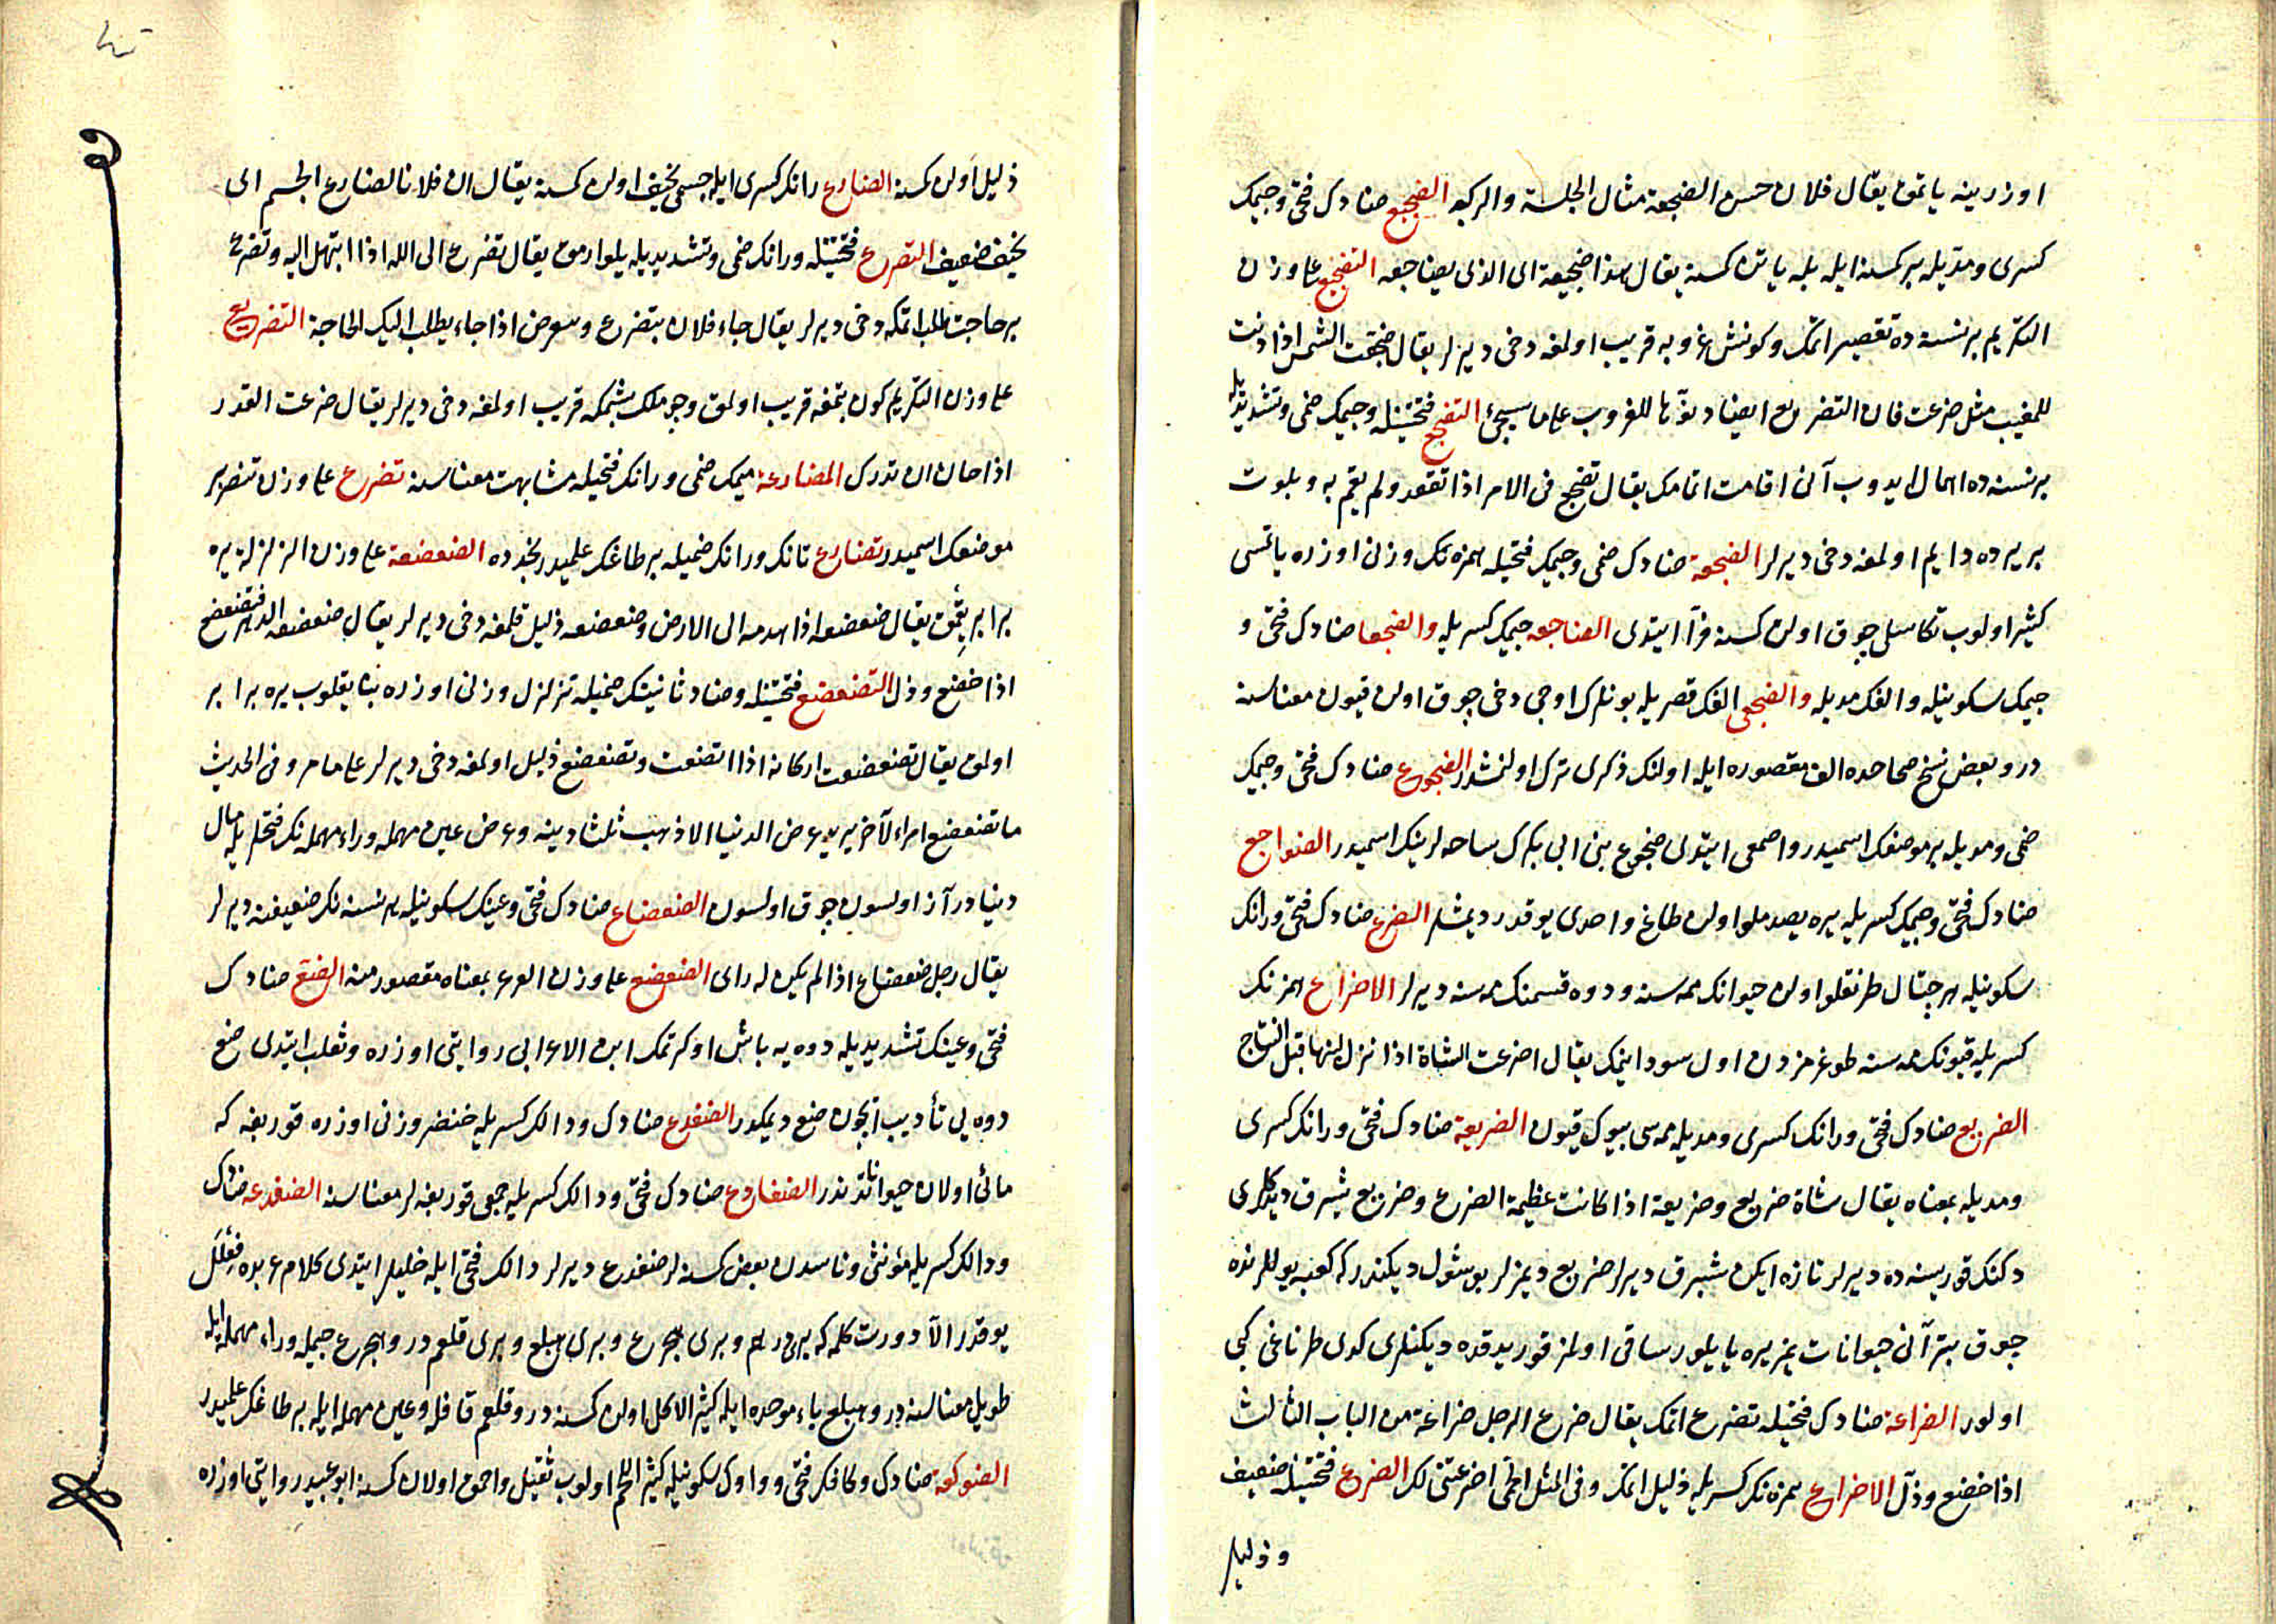 اوزرينه ياتمق يقال فلان حسن الضجعة مثال الجلسة والركبة الضجيع ضادك فتحى وجيمك
كسرى ومديله بر كمسنه ايله بله ياتن كمسنه يقال هذا ضجيعه اى الذى يضاجعه التضجيع على وزن
التكريم بر نسنه ده تقصير اتمك وكونش غروبه قريب اولمغه دخى ديرلر يقال ضجعت الشمس اذا دنت
للمغيب مثل ضرعت فان التضريع ايضا دنوها للغروب على ما سيجئ التضجع فتحتينله وجيمك ضمى وتشديديله
بر نسنه ده اهمال ايدوب آنى اقامت اتمامك يقال تضجع فى الامر اذا تقعد ولم يقم به وبلوت
بر يرده دايم اولمغه دخى ديرلر الضجعة ضادك ضمى وجيمك فتحيله همزه نك وزنى اوزره ياتمسى
كثير اولوب تكاسلى چوق اولن كمسنه فرآ ايتدى الضاجعه جيمك كسريله والضجعا ضادك فتحى و
جيمك سكونيله والفك مديله والضجعى الفك قصريله بونلرك اوچى دخى چوق اولن قيون معناسنه
در وبعض نسخ صحاحده الف مقصوره ايله اولنك ذكرى ترك اولنمشدر الضجوع ضادك فتحى وجيمك
ضمى ومديله بر موضعك اسميدر واصمعى ايتدى ضجوع بنى ابى بكرك ساحه لرينك اسميدر الضواجع
ضادك فتحى وجيمك كسريله يره يصدملو اولن طاغ واحدى يوقدر ديمشلر الضرع ضادك فتحى ورانك
سكونيله هر چتال طرنقلو اولن حيوانك ممه سنه ودوه قسمنك ممه سنه ديرلر الاضراع همزه نك
كسريله قيونك ممه سنه طوغرمزدن اول سود اينمك يقال اضرعت الشاة اذا نزل لبنها قبل النتاج
الضريع ضادك فتحى ورانك كسرى ومديله ممه سى بيوك قيون الضريعة ضادك فتحى ورانك كسرى
ومديله بمعناه يقال شاة ضريع وضريعة اذا كانت عظيمة الضرع وضريع شبرق ديدكلرى
دكنك قوريسنه ده ديرلر تازه ايكن شبرق ديرلر ضريع ديمزلر بو شول ديكندر كه كعبه يوللرنده
چوق بتر آنى حيوانات يمز يره يايلور ساقى اولمز قوريدقده ديكنلرى كدى طرناغى كبى
اولور الضراعة ضادك فتحيله تضرع اتمك يقال ضرع الرجل ضراعة من الباب الثالث
اذا خضع وذل الاضراع همزه نك كسريله ذليل اتمك وفى المثل الحمى اضرعتنى لك الضرع فتحتينله ضعيف
وذليل
ذليل اولن كمسنه الضارع رانك كسرى ايله جسمى نحيف اولن كمسنه يقال ان فلانا لضارع الجسم اى
نحيف ضعيف التضرع فتحتينله ورانك ضمى وتشديديله يلوارمق يقال تضرع الى الله اذا ابتهل اليه وتضرع
بر حاجت طلب اتمكه دخى ديرلر يقال جاء فلان يتضرع ويتعرض اذا جاء يطلب اليك الحاجة التضريع
على وزن التكريم كون بتمغه قريب اولمق وچوملك پشمكه قريب اولمغه دخى ديرلر يقال ضرعت القدر
اذا حان ان تدرك المضارعة ميمك ضمى ورانك فتحيله مشابهت معناسنه تضرع على وزن تنصر بر
موضعك اسميدر تضارع تانك ورانك ضميله بر طاغك علميدر نجدده الضعضعة على وزن الزلزلة يره
برابر يقمق يقال ضعضعه اذا هدمه الى الارض وضعضعه ذليل قلمغه دخى ديرلر يقال ضعضعه الدهر فتضعضع
اذا خضع وذل التضعضع فتحتينله وضاد ثانينك ضميله تزلزل وزنى اوزره بنا يقلوب يره برابر
اولمق يقال تضعضعت اركانه اذا اتضعت وتضعضع ذليل اولمغه دخى ديرلر على ما مر وفى الحديث
ما تضعضع امرء لآخر يريد عرض الدنيا الا ذهب ثلثا دينه وعرض عين مهمله وراء مهمله نك فتحلريله مال
دنيادر آز اولسون چوق اولسون الضعضاع ضادك فتحى وعينك سكونيله هر نسنه نك ضعيفنه ديرلر
يقال رجل ضعضاع اذا لم يكن له راى الضعضع على وزن العرعر بمعناه مقصور منه الضع ضادك
فتحى وعينك تشديديله دوه يه باش اوكرتمك ابن الاعرابى روايتى اوزره وثعلب ايتدى ضع
دوه يى تأديب ايچون ضع ديمكدر الضفدع ضادك ودالك كسريله خنصر وزنى اوزره قوربغه كه
مائى اولان حيواناتدندر الضفادع ضادك فتحى ودالك كسريله جمعى قوربغه لر معناسنه الضفدعه ضادك
ودالك كسريله مؤنثى وناسدن بعض كمسنه لر ضفدع ديرلر دالك فتحى ايله خليل ايتدى كلام عربده فعلل
يوقدر الآ دورت كلمه كه برى درهم وبرى هجرع وبرى هبلع وبرى قلعم در وهجرع جيمله وراء مهمله ايله
طويل معناسنه در وهبلع باء موحده ايله كثير الاكل اولن كمسنه در وقلعم قافله وعين مهمله ايله بر طاغك علميدر
الضوكعة ضادك وكافك فتحى وواوك سكونيله كثير اللحم اولوب ثقيل واحمق اولان كمسنه ابو عبيد روايتى اوزره